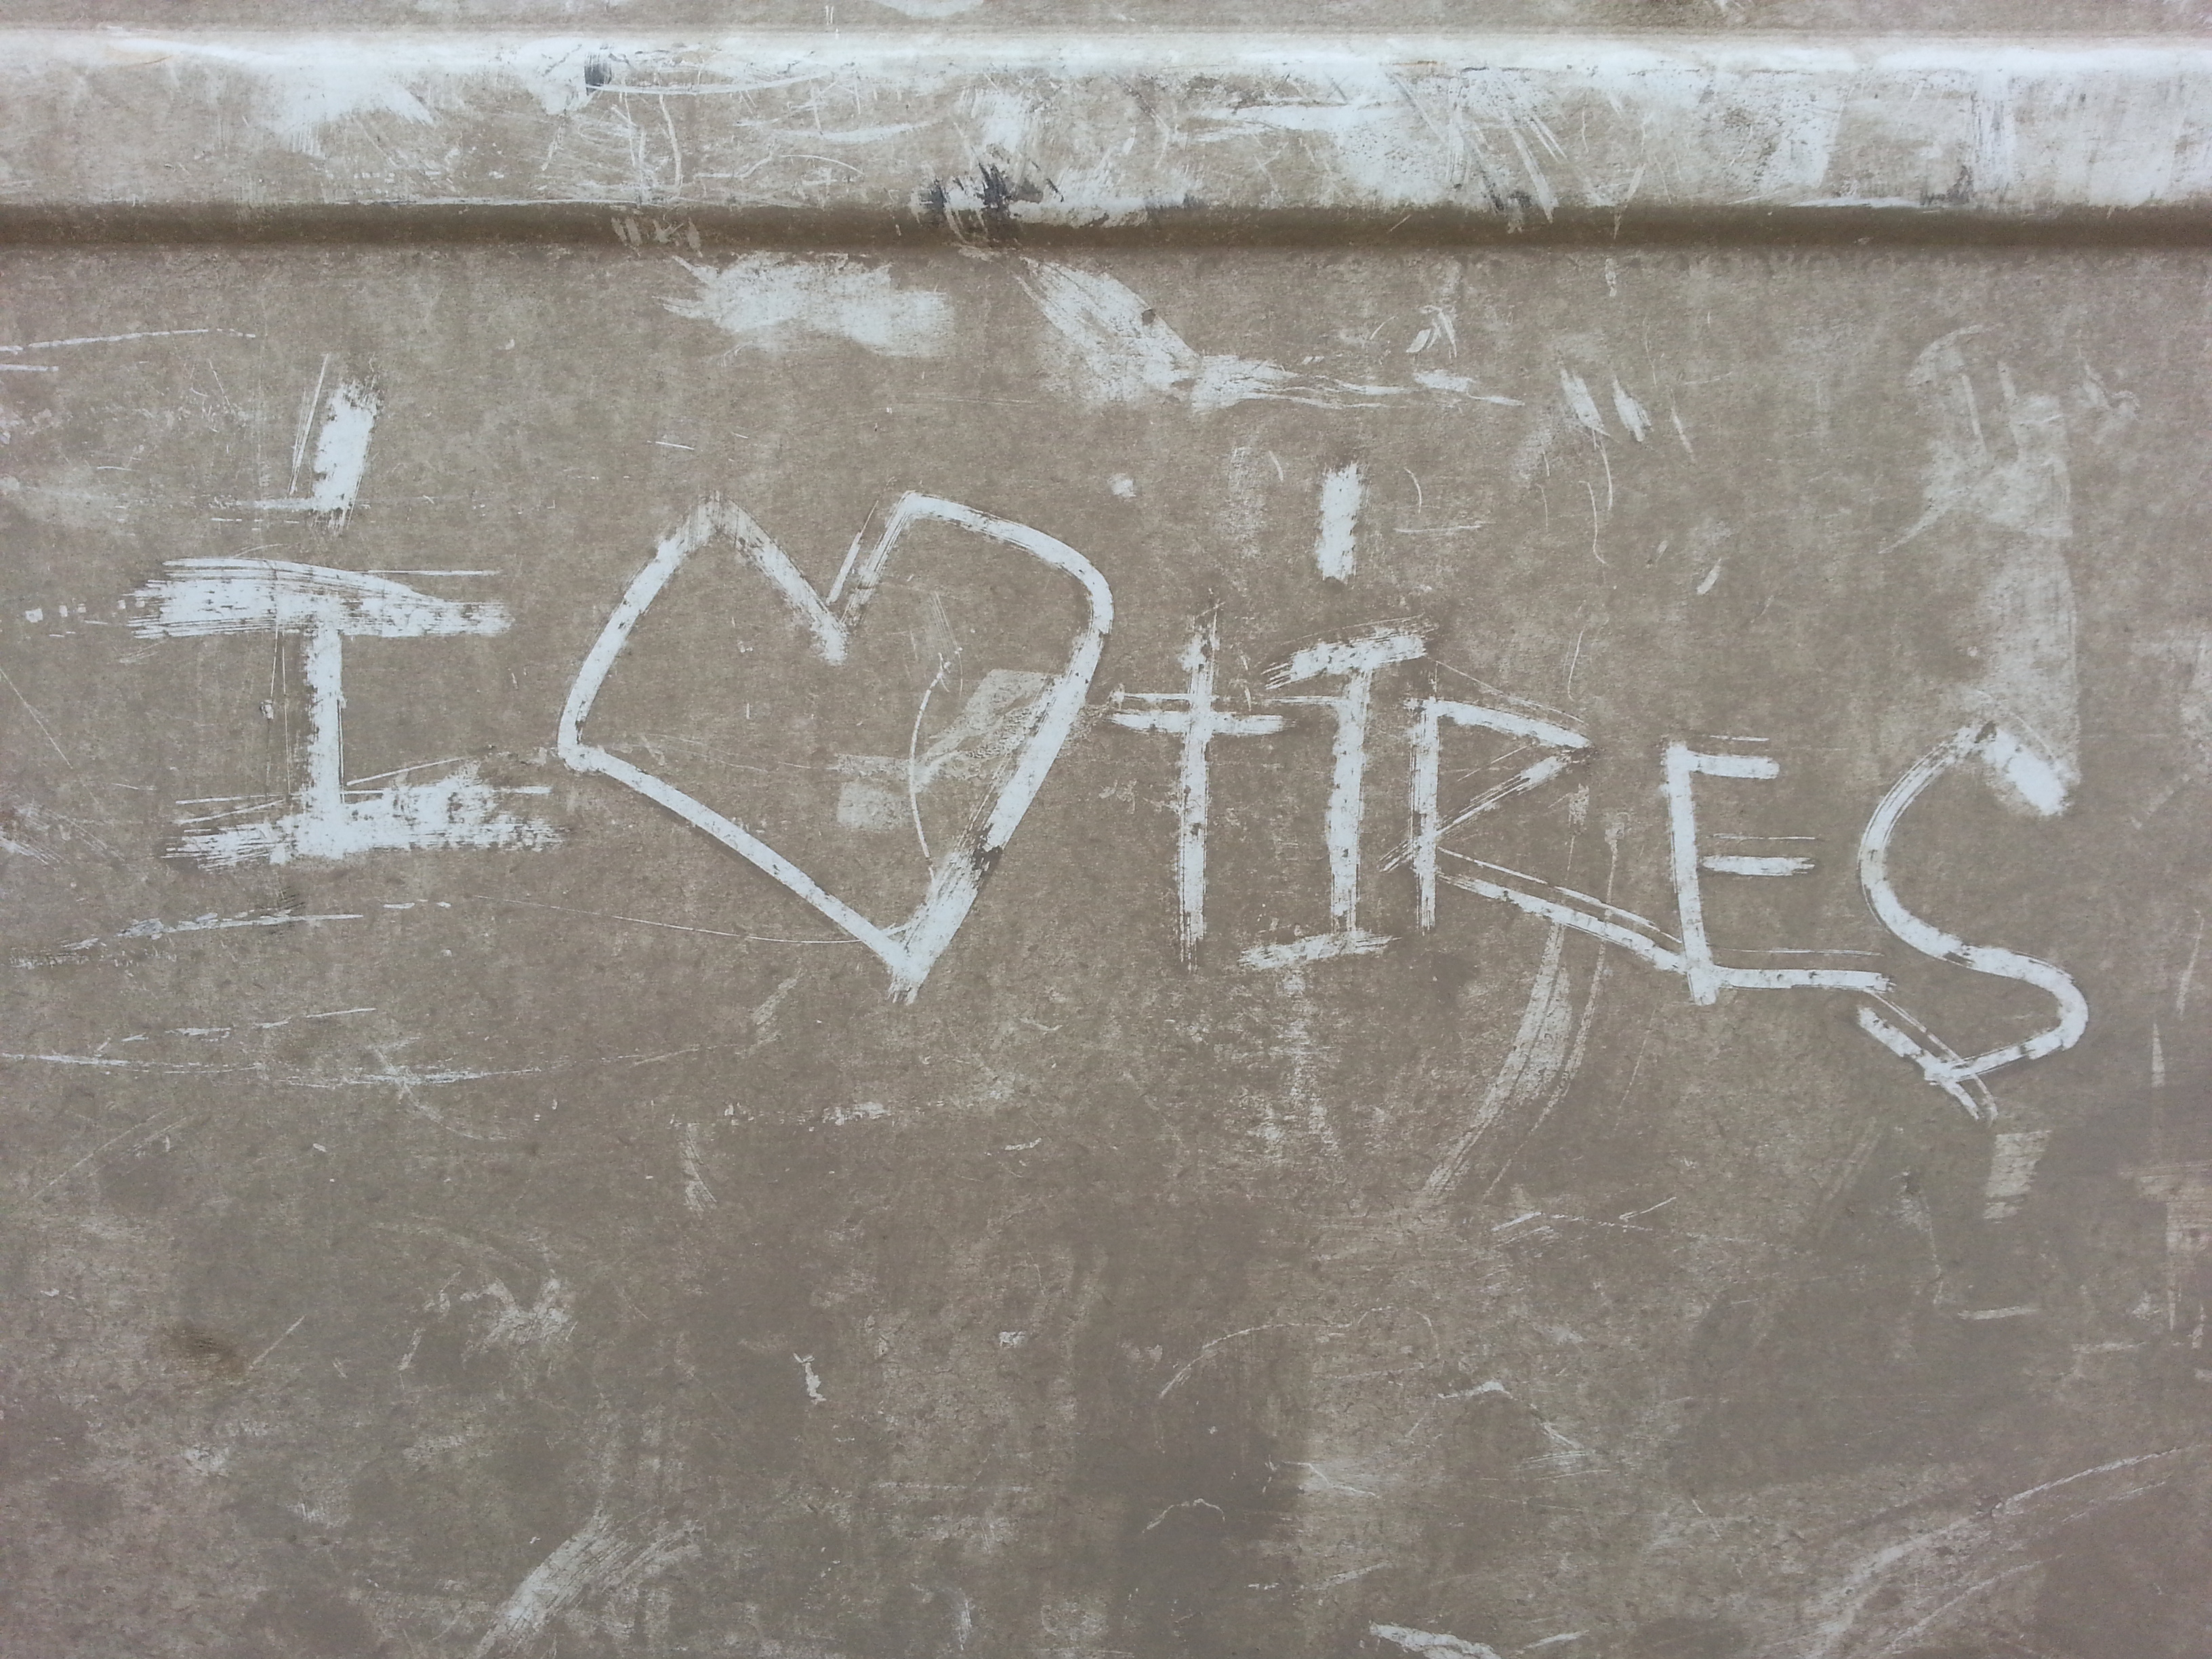 I ♡ tIRES